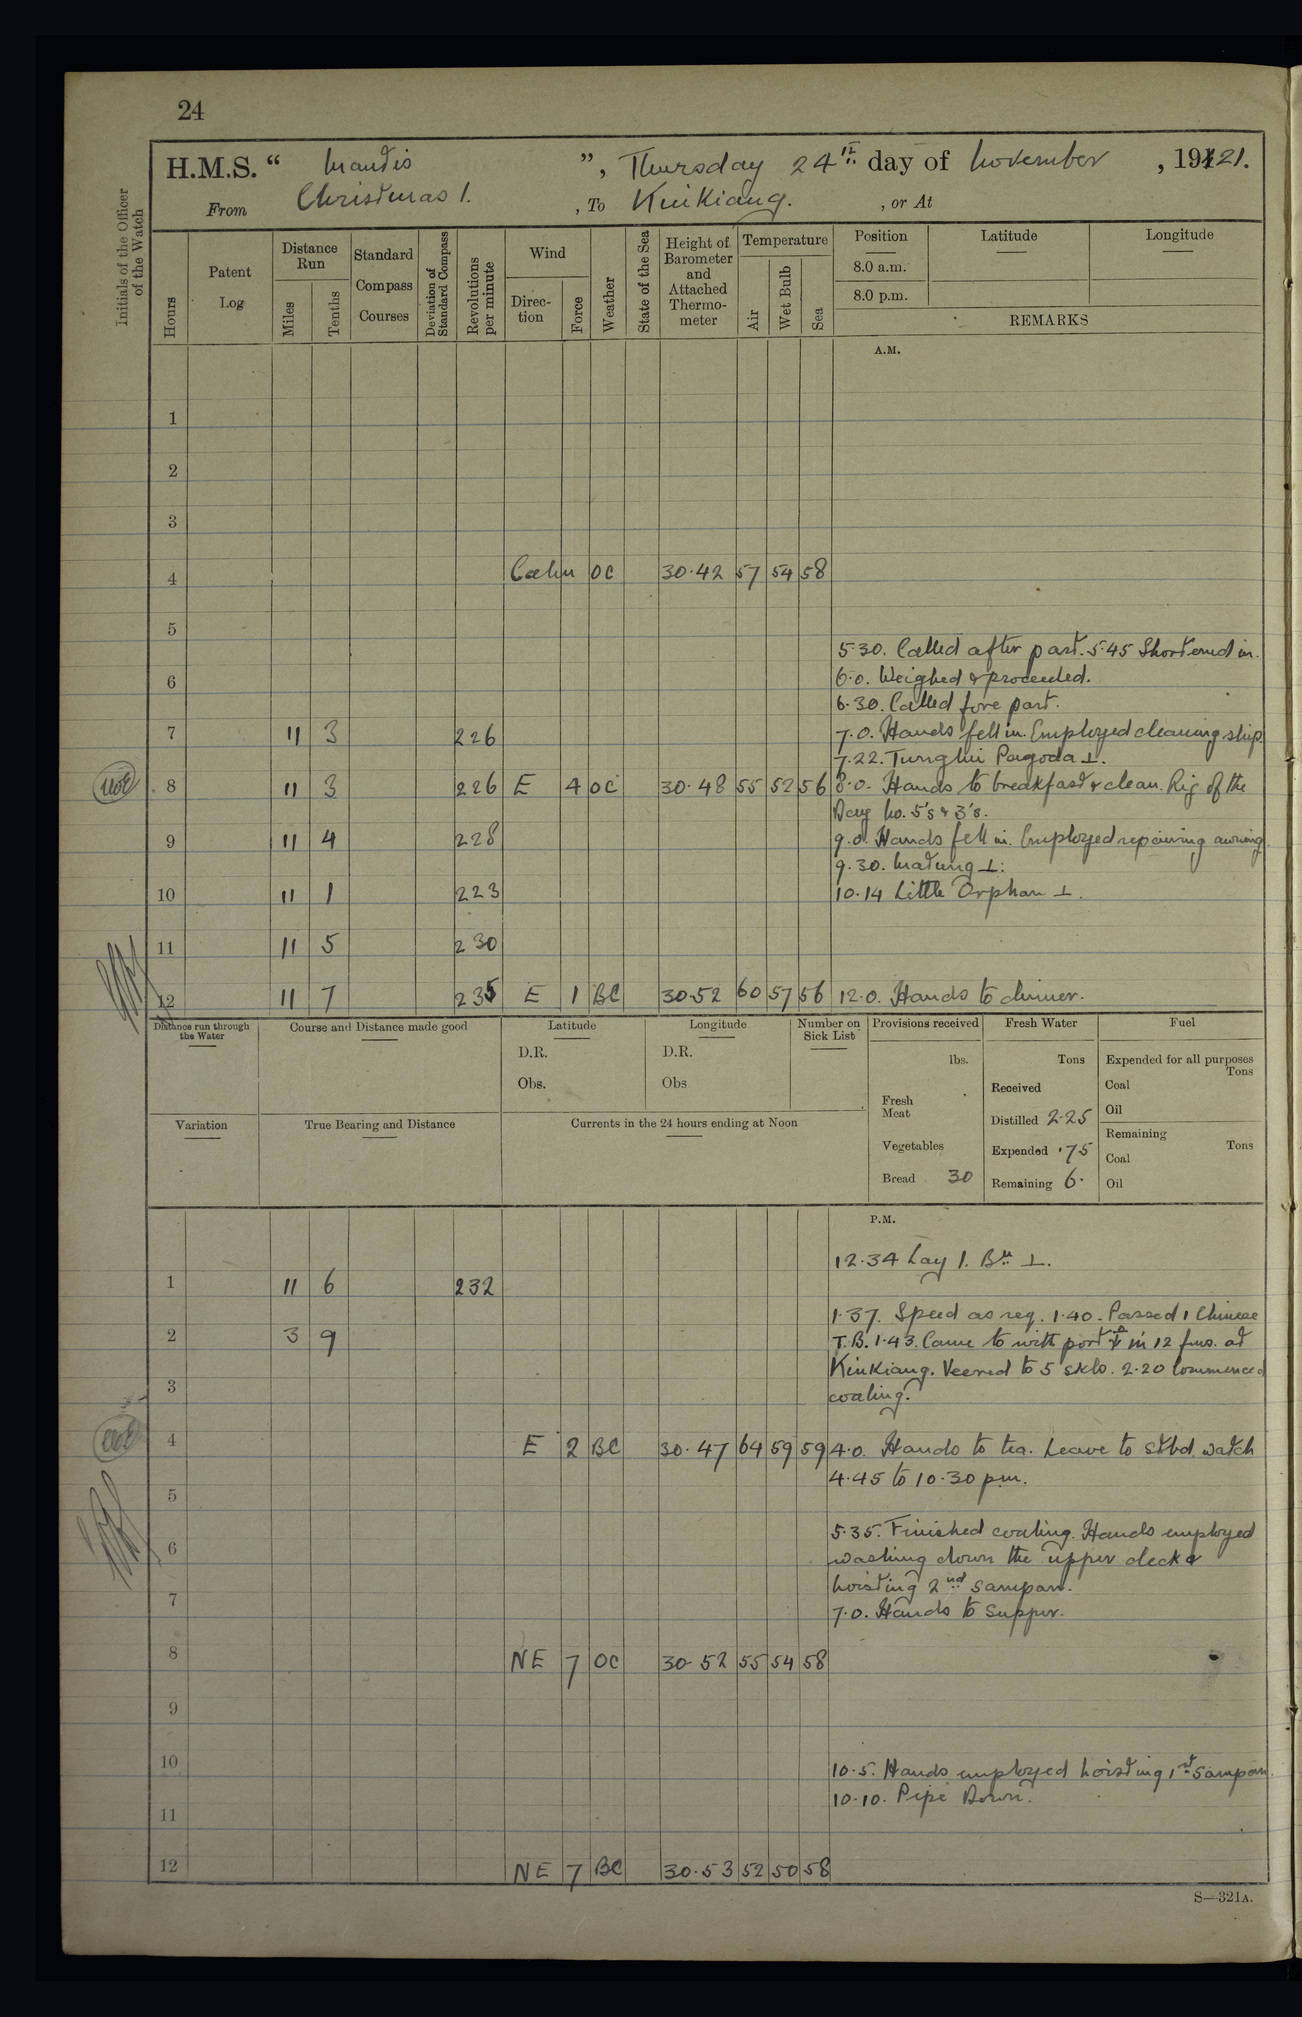 24
H.M.S. “ Mantis ”, Thursday 24th day of November, 19121.
From Christmas I. , To KiuKiang. , or At
Initials of the Officer of the Watch
Hours
Patent Log
Distance Run
Miles
Tenths
Standard Compass Courses
Deviation of Standard Compass
Revolutions per minute
Wind
Direction
Force
Weather
State of the Sea
Height of Barometer and Attached Thermometer
Temperature
Air
Wet Bulb
Sea
Position
8.0 a.m.
8.0 p.m.
Latitude
Longitude
REMARKS
A.M.
1
2
3
4 Calm OC 30.42 57 54 58
5
5.30. Called after part. 5.45 Shortened in.
6 6.0. Weighed & proceeded.
6.30. Called fore part.
7 11 3 226 7.0. Hands fell in. Employed cleaning ship.
7.22. Tungliu Pagoda ⊥.
8 11 3 226 E 4 OC 30.48 55 52 56 8.0. Hands to breakfast & clean. Rig of the
Day No. 5's & 3's.
9 11 4 228 9.0. Hands fell in. Employed repairing awning.
9.30. Matung ⊥.
10 11 1 223 10.14 Little Orphan ⊥.
11 11 5 230
12 11 7 235 E 1 BC 30.52 60 57 56 12.0. Hands to dinner.
Distance run through the Water
Course and Distance made good
Latitude
D.R.
Obs.
Longitude
D.R.
Obs
Number on Sick List
Provisions received
lbs.
Fresh Meat
Vegetables
Bread 30
Fresh Water
Tons
Received
Distilled 2.25
Expended .75
Remaining 6.
Fuel
Expended for all purposes
Tons
Coal
Oil
Remaining
Tons
Coal
Oil
Variation
True Bearing and Distance
Currents in the 24 hours ending at Noon
P.M.
12.34 Lay I. Bn ⊥.
1 11 6 232
1.37. Speed as req. 1.40. Passed 1 Chinese
2 3 9 T.B. 1.43. Came to with port ⚓ in 12 fms. at
KiuKiang. Veered to 5 skls. 2.20 Commenced
3 coaling.
4 E 2 BC 30.47 64 59 59 4.0. Hands to tea. Leave to stbd. watch
4.45 to 10.30 p.m.
5
5.35. Finished coaling. Hands employed
6 washing down the upper deck &
hoisting 2nd sampan.
7 7.0. Hands to Supper.
8 NE 7 OC 30.52 55 54 58
9
10 10.5. Hands employed hoisting 1st sampan.
10.10. Pipe Down.
11
12 NE 7 BC 30.53 52 50 58
S—321A.